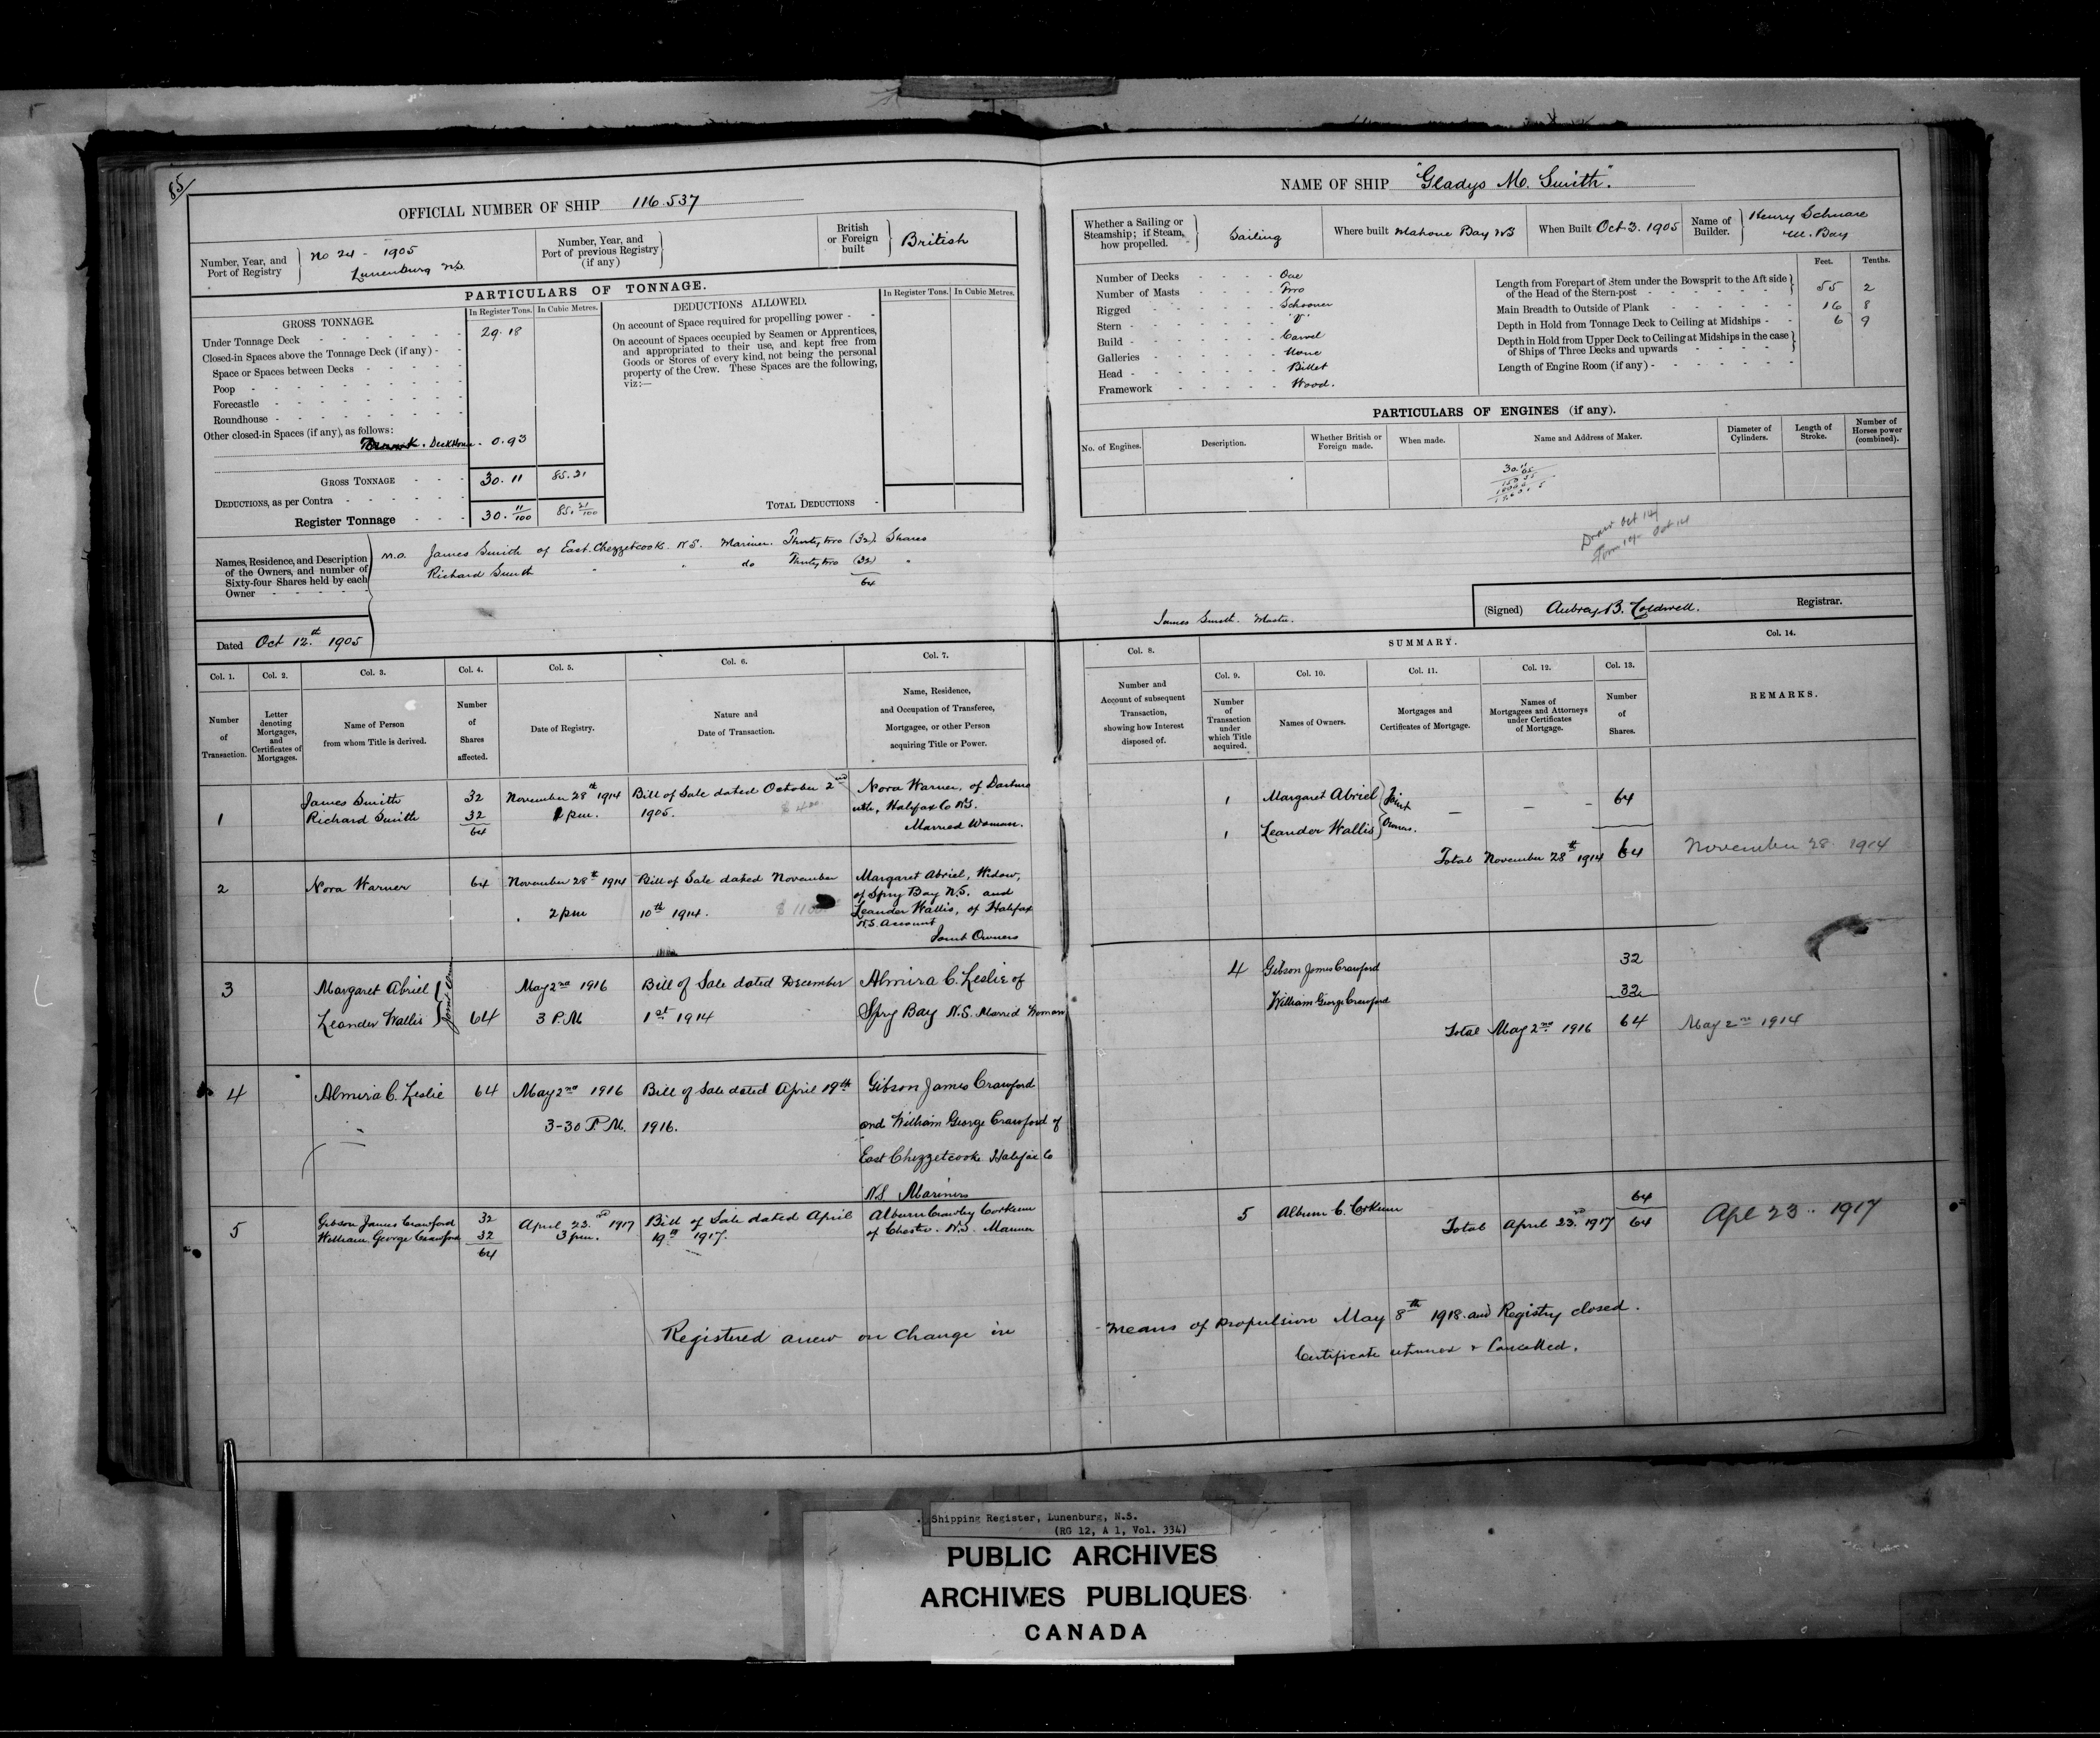 OFFICIAL NUMBER OF SHIP 116.537
Number, Year, and Port of Registry No 24 - 1905 Lunenburg N.S.
Number, Year, and Port of previous Registry (if any)
British or Foreign built British
PARTICULARS OF TONNAGE.
GROSS TONNAGE. In Register Tons. In Cubic Metres.
Under Tonnage Deck 29.18
Closed-in Spaces above the Tonnage Deck (if any)
Space or Spaces between Decks
Poop
Forecastle
Roundhouse
Other closed-in Spaces (if any), as follows:
Deck House 0.93
GROSS TONNAGE 30.11 85.21
DEDUCTIONS, as per Contra
Register Tonnage 30.11/100 85.21/100
DEDUCTIONS ALLOWED. In Register Tons. In Cubic Metres.
On account of Space required for propelling power
On account of Spaces occupied by Seamen or Apprentices, and appropriated to their use, and kept free from Goods or Stores of every kind, not being the personal property of the Crew. These Spaces are the following, viz:—
TOTAL DEDUCTIONS
Names, Residence, and Description of the Owners, and number of Sixty-four Shares held by each Owner
M.O. James Smith of East Chezzetcook N.S. Mariner. Thirty two (32) Shares
Richard Smith " " do Thirty two (32) "
64
Dated Oct 12th 1905
NAME OF SHIP "Gladys M. Smith".
Whether a Sailing or Steamship; if Steam, how propelled. Sailing
Where built Mahone Bay NS
When Built Oct 3. 1905
Name of Builder. Henry Schnare M. Bay
Number of Decks One
Number of Masts Two
Rigged Schooner
Stern
Build Carvel
Galleries None
Head Billet
Framework Wood.
Feet. Tenths.
Length from Forepart of Stem under the Bowsprit to the Aft side of the Head of the Stern-post 55 2
Main Breadth to Outside of Plank 16 8
Depth in Hold from Tonnage Deck to Ceiling at Midships 6 9
Depth in Hold from Upper Deck to Ceiling at Midships in the case of Ships of Three Decks and upwards
Length of Engine Room (if any)
PARTICULARS OF ENGINES (if any).
No. of Engines. Description. Whether British or Foreign made. When made. Name and Address of Maker. Diameter of Cylinders. Length of Stroke. Number of Horses power (combined).
James Smith. Master.
(Signed) Aubrey B. Caldwell. Registrar.
Col. 1. Number of Transaction.
Col. 2. Letter denoting Mortgages, and Certificates of Mortgages.
Col. 3. Name of Person from whom Title is derived.
Col. 4. Number of Shares affected.
Col. 5. Date of Registry.
Col. 6. Nature and Date of Transaction.
Col. 7. Name, Residence, and Occupation of Transferee, Mortgagee, or other Person acquiring Title or Power.
Col. 8. Number and Account of subsequent Transaction, showing how Interest disposed of.
SUMMARY.
Col. 9. Number of Transaction under which Title acquired.
Col. 10. Names of Owners.
Col. 11. Mortgages and Certificates of Mortgage.
Col. 12. Names of Mortgagees and Attorneys under Certificates of Mortgage.
Col. 13. Number of Shares.
Col. 14. REMARKS.
1 James Smith 32 November 28th 1914 Bill of Sale dated October 2nd Nora Warner, of Dartmo
Richard Smith 32 1 pm. 1905. uth, Halifax Co N.S.
64 Married Woman.
2 Nora Warner 64 November 28th 1914 Bill of Sale dated November Margaret Abriel, Widow,
of Spry Bay N.S. and
2 pm 10th 1914. Leander Wallis, of Halifax
N.S. Account
Joint Owners
3 Margaret Abriel May 2nd 1916 Bill of Sale dated December Almira C. Leslie of
Leander Wallis 64 3 P.M 1st 1914 Spry Bay N.S. Married Woman
4 Almira C. Leslie 64 May 2nd 1916 Bill of Sale dated April 19th Gibson James Crawford
3-30 P.M. 1916. and William George Crawford of
East Chezzetcook Halifax Co
N.S. Mariners
5 Gibson James Crawford 32 April 23rd 1917 Bill of Sale dated April Alburn Crawley Corkum
William George Crawford 32 3 pm. 19th 1917. of Chester. N.S. Mariner
64
1 Margaret Abriel Joint — — - 64
1 Leander Wallis Owners.
Total November 28th 1914 64 November 28 1914
4 Gibson James Crawford 32
William George Crawford 32
Total May 2nd 1916 64 May 2nd 1914
5 Alburn C. Corkum 64
Total April 23rd 1917 64 Apl 23. 1917
Registered anew on Change in means of propulsion May 8th 1918 and Registry closed.
Certificate returned & Cancelled.
Shipping Register, Lunenburg, N.S.
(RG 12, A 1, Vol. 334)
PUBLIC ARCHIVES
ARCHIVES PUBLIQUES
CANADA